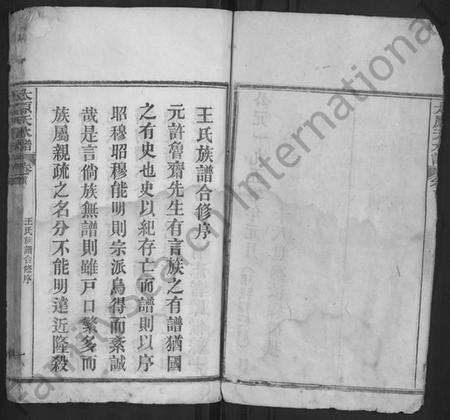 王氏族譜合修序
元許魯齋先生有言族之有譜猶國
之有史也史以紀存亡而譜則以序
昭穆昭穆能明則宗派烏得而紊誠
哉是言倘族無譜則雖戶口繁多而
族屬親疏之名分不能明遠近隆殺
王氏族譜合修序
FamilySearch International